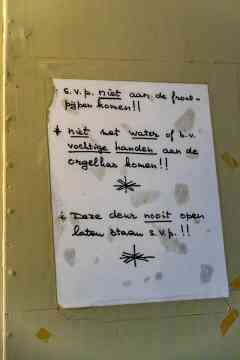 s.v.p. niet aan de front-
pijpen komen!!
* niet met water of b.v.
vochtige handen aan de
orgelkas komen!!
Deze deur nooit open
laten staan s.v.p.!!